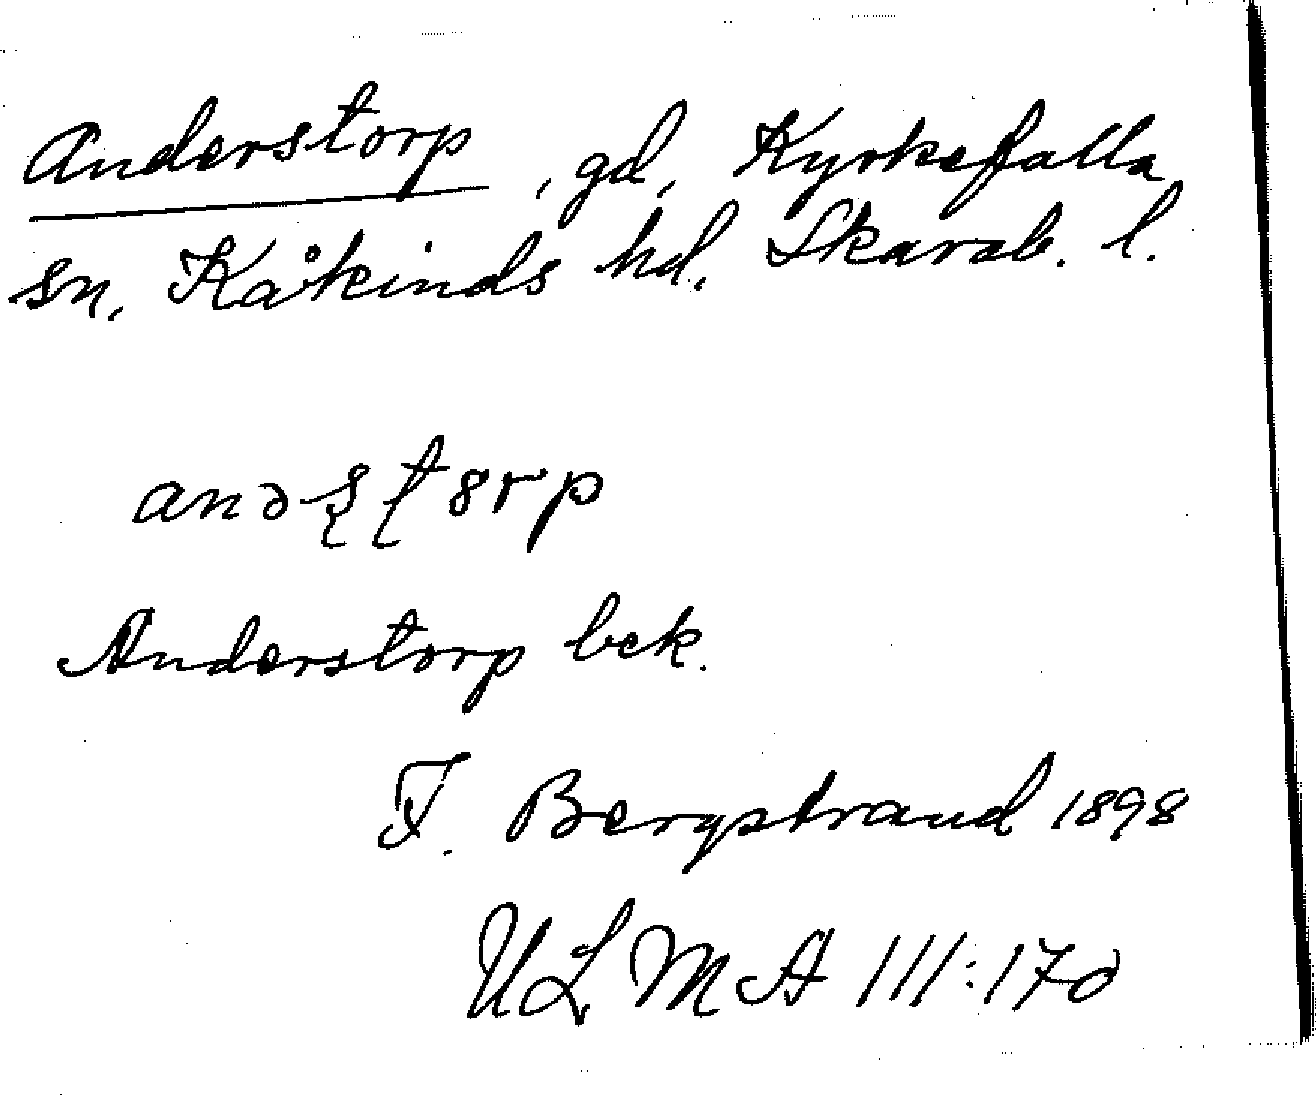 Anderstorp, gd, Kyrkefalla
sn, Kåkinds hd. Skarab. l.
Anderstorp bek.
F. Bergstrand 1898
ULMA 111:170